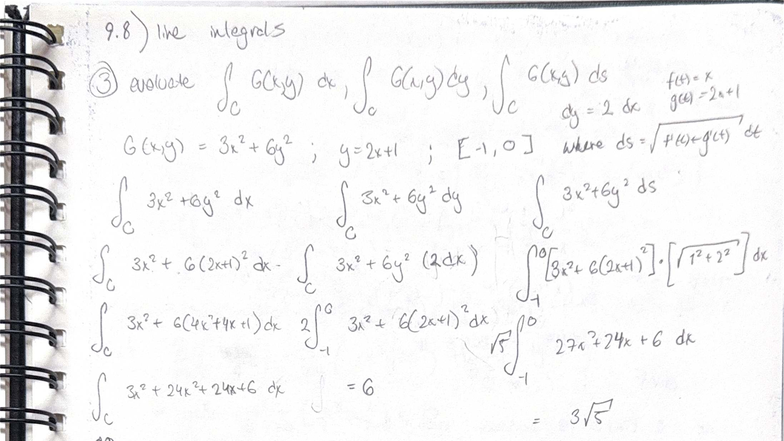 9.8) line integrals
③ evaluate ∫_C G(x,y) dx, ∫_C G(x,y) dy, ∫_C G(x,y) ds
f(t) = x
g(t) = 2x+1
dy = 2 dx
G(x,y) = 3x² + 6y² ; y = 2x+1 ; [-1, 0] where ds = √(f'(t)+g'(t)) dt
∫_C 3x² + 6y² dx ∫_C 3x² + 6y² dy ∫_C 3x² + 6y² ds
∫_C 3x² + 6(2x+1)² dx ∫_C 3x² + 6y² (2dx) ∫_{-1}^{0} [3x² + 6(2x+1)²]·[√(1²+2²)] dx
∫_C 3x² + 6(4x²+4x+1) dx 2∫_{-1}^{0} 3x² + 6(2x+1)² dx √5 ∫_{-1}^{0} 27x² + 24x + 6 dx
∫_C 3x² + 24x² + 24x + 6 dx = 6
= 3√5